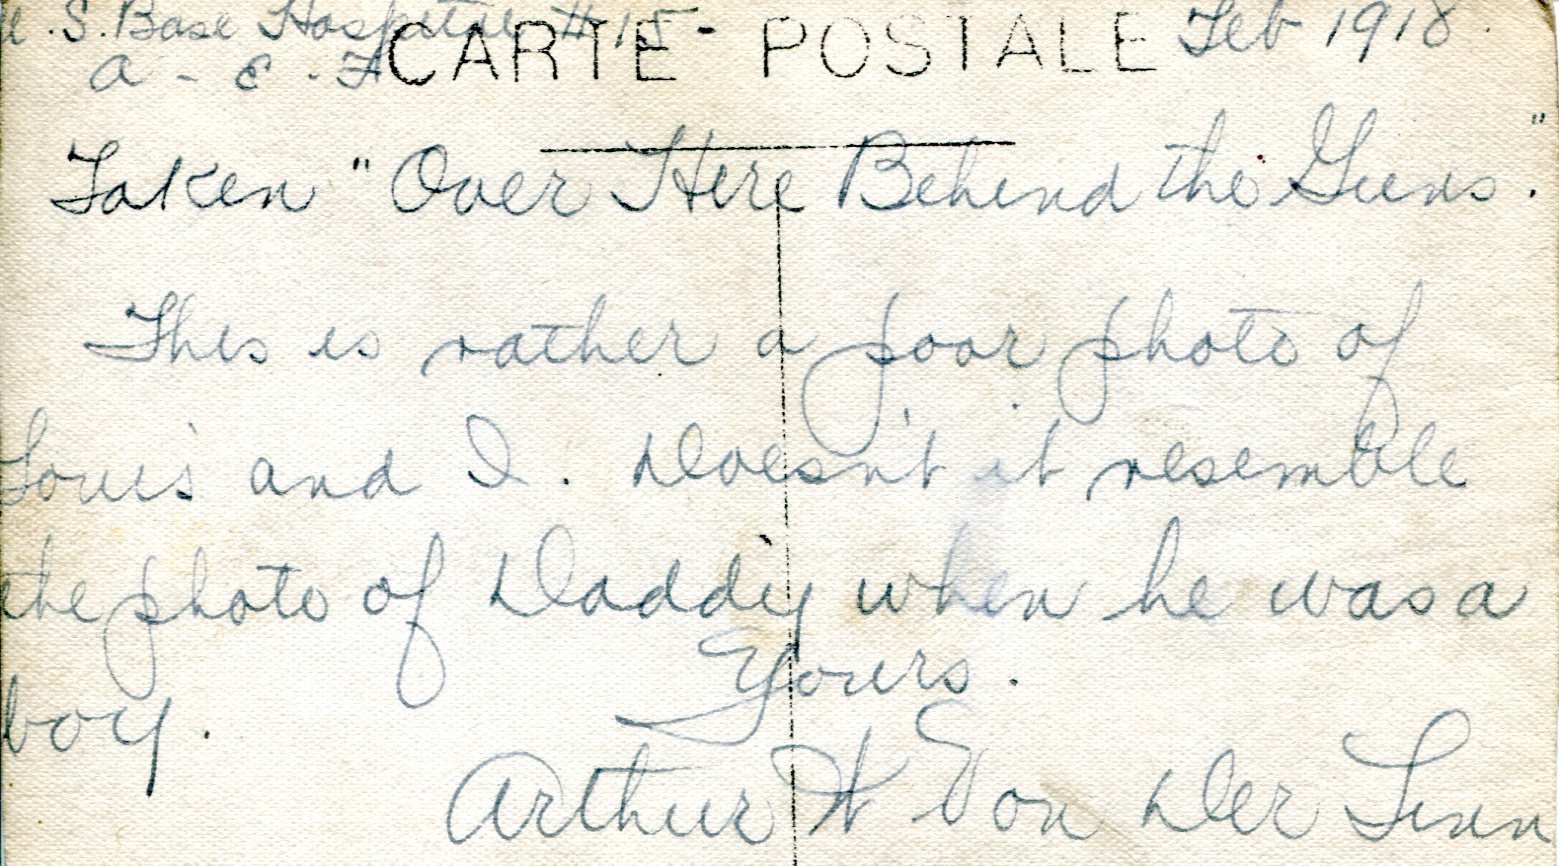 U.S. Base Hospital #15- Feb 1918.
A-E-F
CARTE POSTALE
Taken "Over Here Behind the Guns."
This is rather a poor photo of
Louis and I. Doesn't it resemble
the photo of Daddy when he was a
boy.
Yours.
Arthur H Von Der Linn